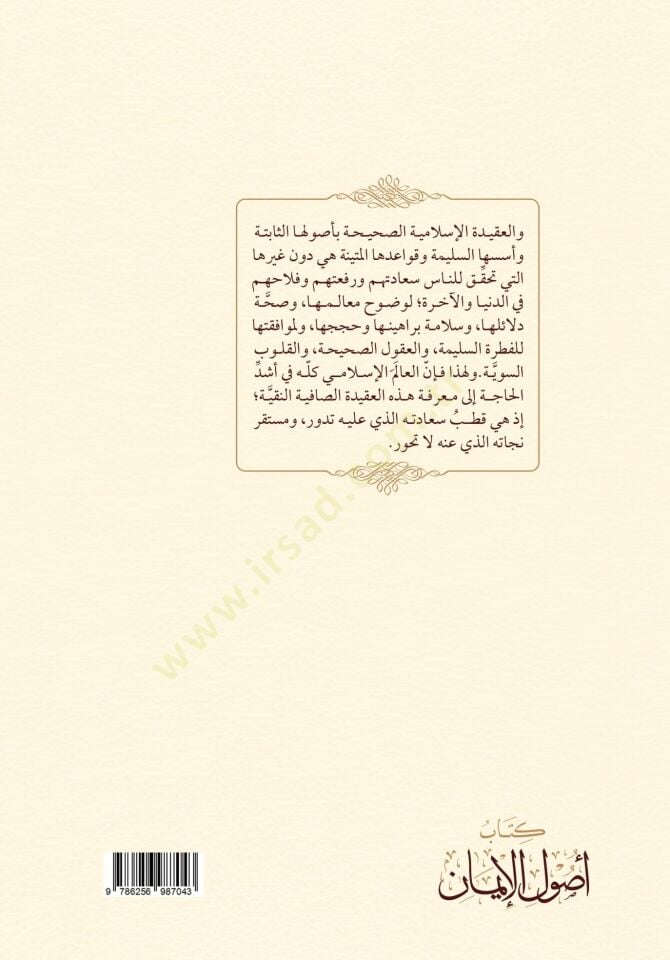 والعقيدة الإسلامية الصحيحة بأصولها الثابتة
وأسسها السليمة وقواعدها المتينة هي دون غيرها
التي تحقِّق للناس سعادتهم ورفعتهم وفلاحهم
في الدنيا والآخرة؛ لوضوح معالمها، وصحَّة
دلائلها، وسلامة براهينها وحججها، ولموافقتها
للفطرة السليمة، والعقول الصحيحة، والقلوب
السويَّة. ولهذا فإنّ العالَمَ الإسلامي كلّه في أشدِّ
الحاجة إلى معرفة هذه العقيدة الصافية النقيَّة؛
إذ هي قطبُ سعادته الذي عليه تدور، ومستقر
نجاته الذي عنه لا تحور.
www.irsad.com.tr
كِتَابُ
أُصُولِ الإِيمَانِ
9 786256 987043